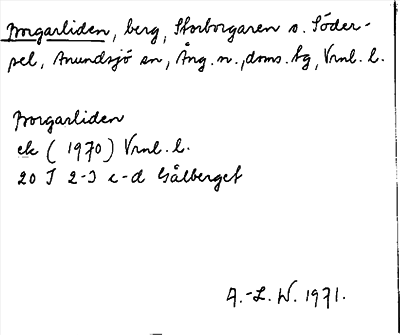 Borgarliden, berg, Storborgaren o. Söder-
sel, Anundsjö sn, Ång. n., doms. tg, Vrnl. l.
Borgarliden
ek (1970) Vrnl. l.
20 I 2-3 c-d Gålberget
A.-L. W. 1971.